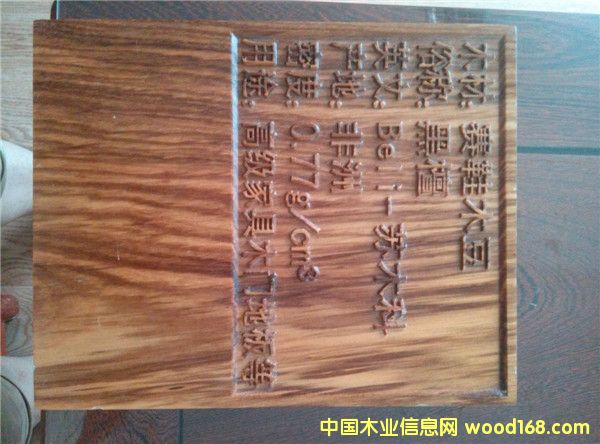 木材: 赛鞋木豆
俗称: 黑檀
英文: Beli-苏木科
产地: 非洲
密度: 0.77g/cm3
用途: 高级家具木门地板等
中国木业信息网 wood168.com